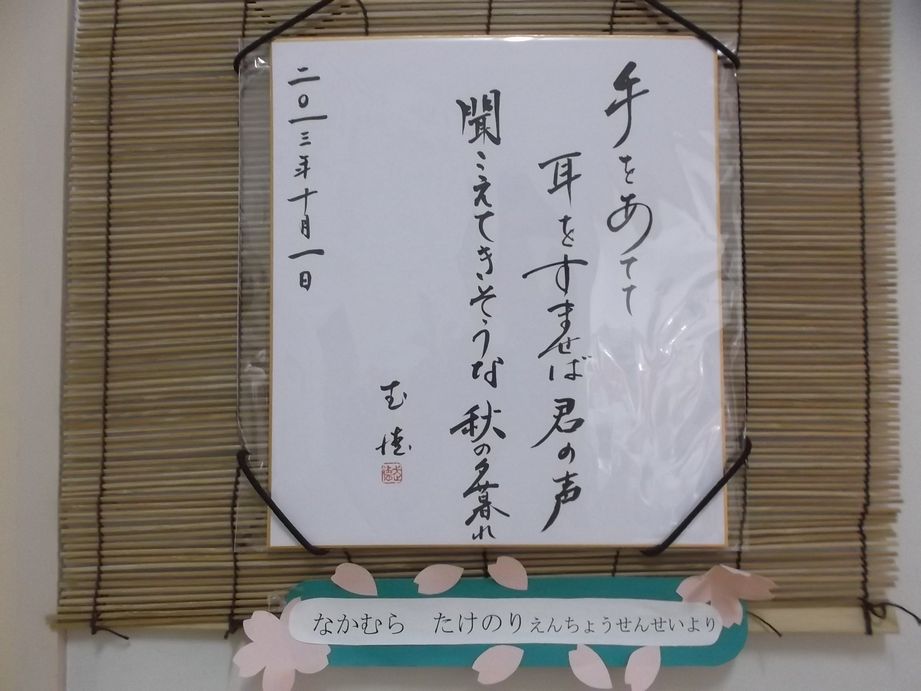 手をあてて
耳をすませば君の声
聞こえてきそうな秋の夕暮れ
二〇一三年十月一日
なかむら　たけのりえんちょうせんせいより